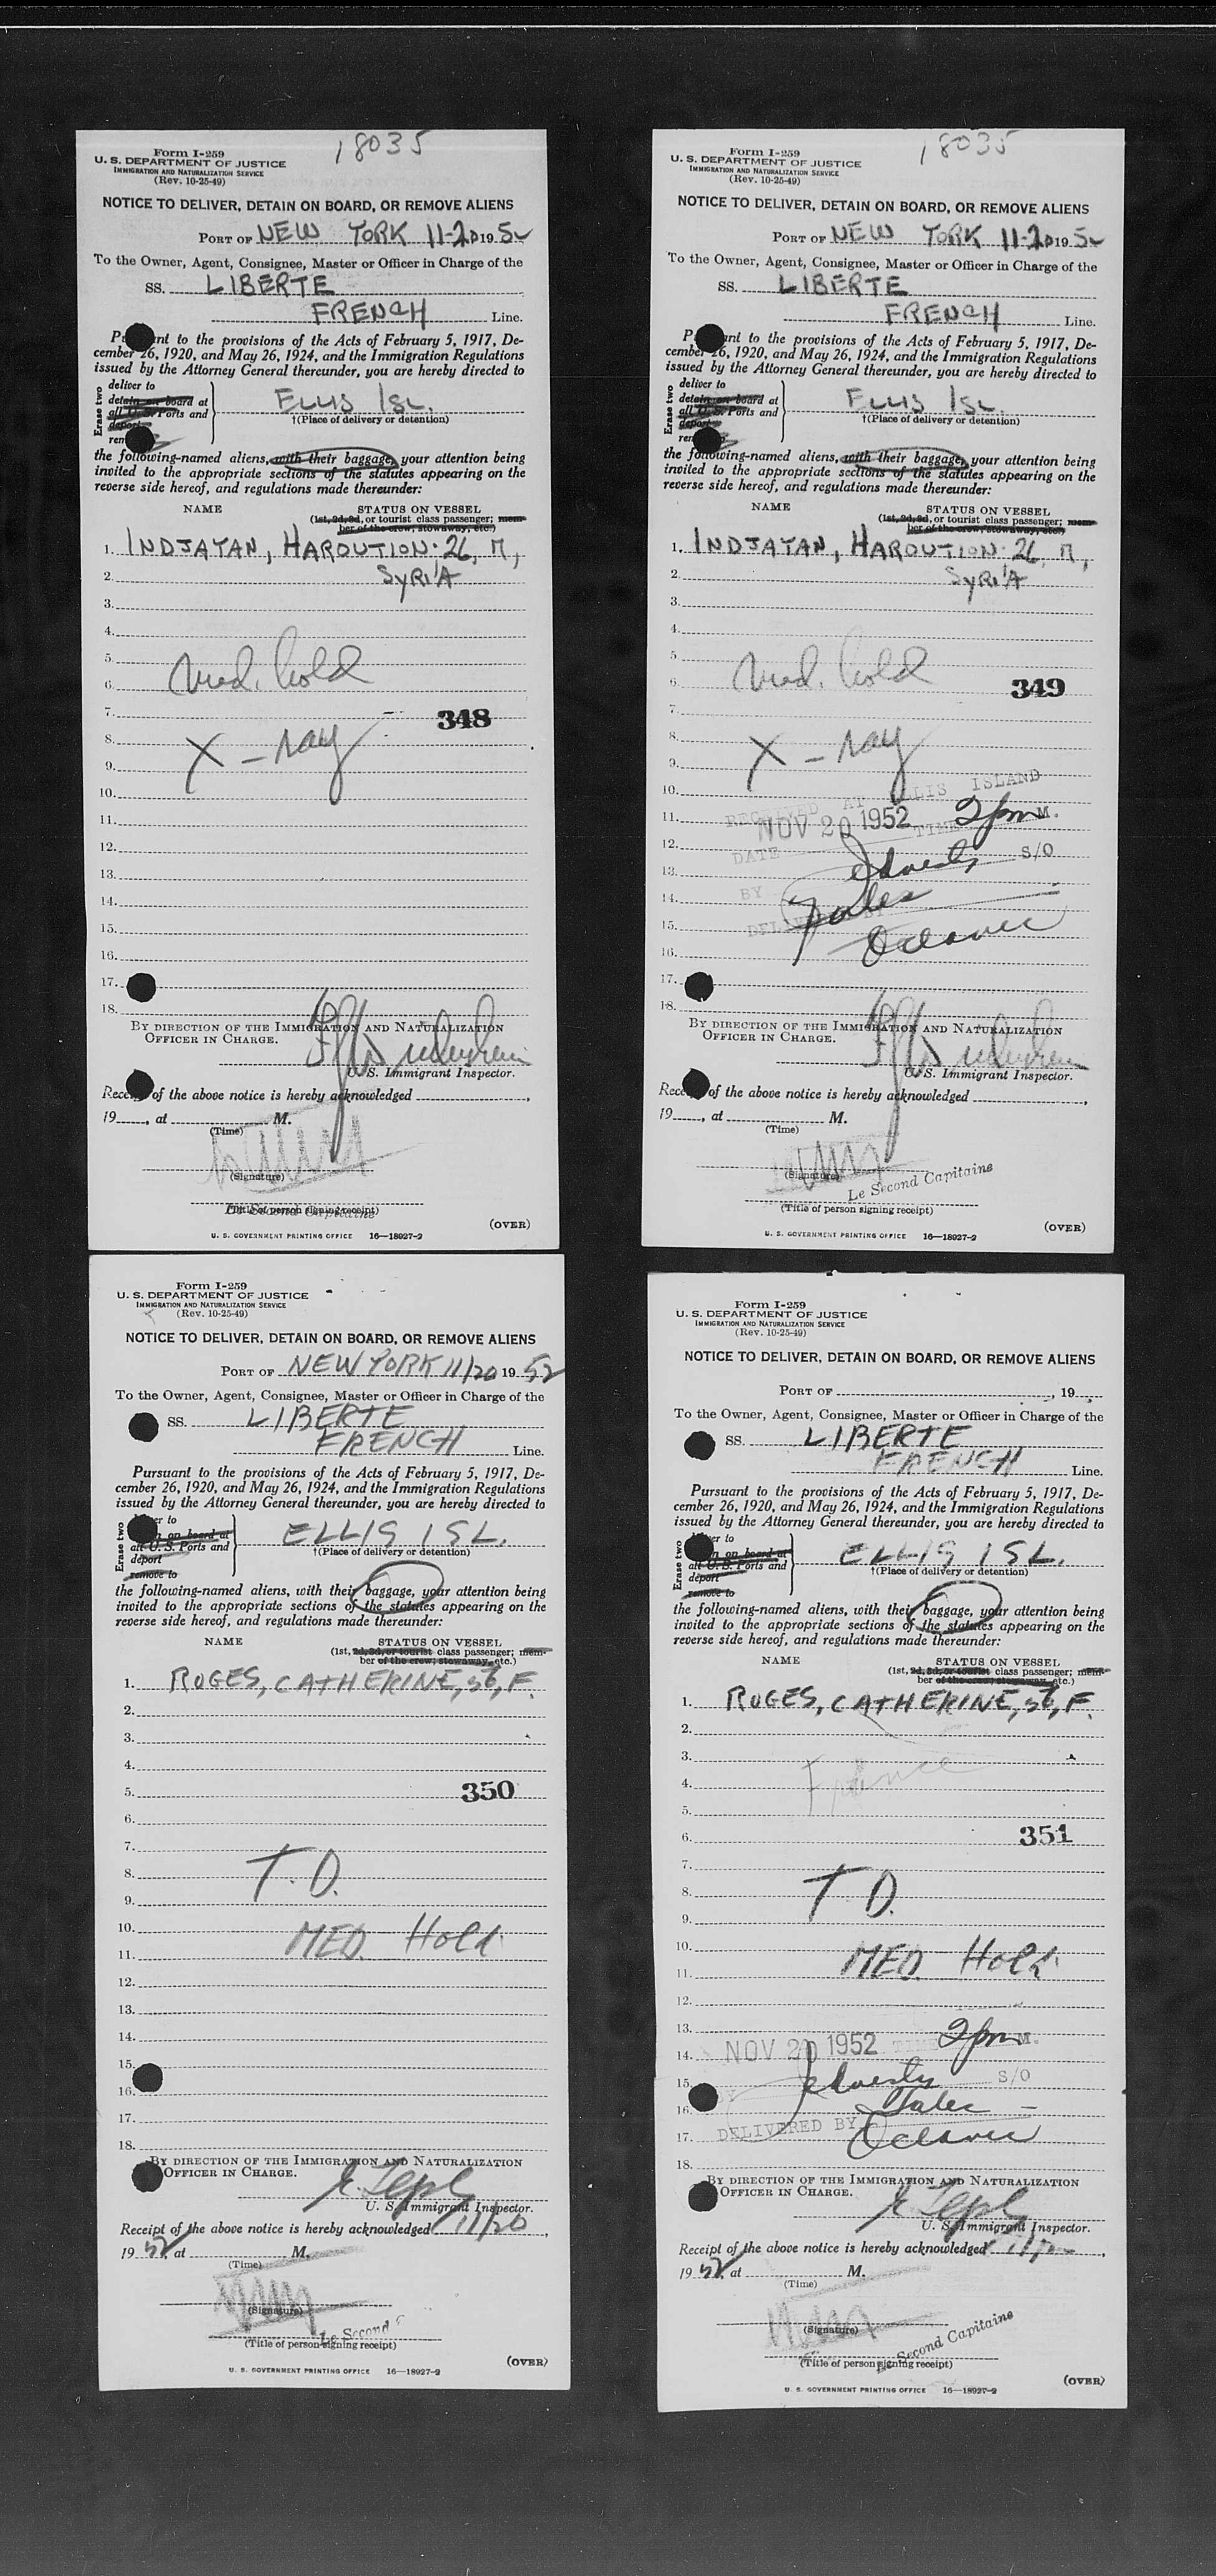 18035
Form I-259
U. S. DEPARTMENT OF JUSTICE
IMMIGRATION AND NATURALIZATION SERVICE
(Rev. 10-25-49)
NOTICE TO DELIVER, DETAIN ON BOARD, OR REMOVE ALIENS
PORT OF NEW YORK 11-20 1952
To the Owner, Agent, Consignee, Master or Officer in Charge of the
SS. LIBERTE
FRENCH Line.
nt to the provisions of the Acts of February 5, 1917, De-
cember 26, 1920, and May 26, 1924, and the Immigration Regulations
issued by the Attorney General thereunder, you are hereby directed to
Erase two
deliver to
detain on board at
all U.S. Ports and
deport
rem
ELLIS ISL.
†(Place of delivery or detention)
the following-named aliens, with their baggage, your attention being
invited to the appropriate sections of the statutes appearing on the
reverse side hereof, and regulations made thereunder:
NAME STATUS ON VESSEL
(1st, 2d, 3d, or tourist class passenger; mem-
ber of the crew, stowaway, etc.)
1. INDJATAN, HAROUTION. 26, M,
2. SYRIA
3.
4.
5.
6. Med. hold
7. 348
8. X-ray
9.
10.
11.
12.
13.
14.
15.
16.
17.
18.
BY DIRECTION OF THE IMMIGRATION AND NATURALIZATION
OFFICER IN CHARGE.
U. S. Immigrant Inspector.
of the above notice is hereby acknowledged
19 , at M.
(Time)
(Signature)
Le Second Capitaine
(Title of person signing receipt)
(OVER)
U. S. GOVERNMENT PRINTING OFFICE 16—18927-2
18035
Form I-259
U. S. DEPARTMENT OF JUSTICE
IMMIGRATION AND NATURALIZATION SERVICE
(Rev. 10-25-49)
NOTICE TO DELIVER, DETAIN ON BOARD, OR REMOVE ALIENS
PORT OF NEW YORK 11-20 1952
To the Owner, Agent, Consignee, Master or Officer in Charge of the
SS. LIBERTE
FRENCH Line.
nt to the provisions of the Acts of February 5, 1917, De-
cember 26, 1920, and May 26, 1924, and the Immigration Regulations
issued by the Attorney General thereunder, you are hereby directed to
Erase two
deliver to
detain on board at
all U.S. Ports and
deport
rem
ELLIS ISL.
†(Place of delivery or detention)
the following-named aliens, with their baggage, your attention being
invited to the appropriate sections of the statutes appearing on the
reverse side hereof, and regulations made thereunder:
NAME STATUS ON VESSEL
(1st, 2d, 3d, or tourist class passenger; mem-
ber of the crew, stowaway, etc.)
1. INDJATAN, HAROUTION. 26, M,
2. SYRIA
3.
4.
5.
6. Med. hold 349
7.
8. X-ray
9.
10. RECEIVED AT ELLIS ISLAND
11. NOV 20 1952 TIME 2 pm M.
12. DATE S/O
13.
14. BY
15.
16.
17.
18.
BY DIRECTION OF THE IMMIGRATION AND NATURALIZATION
OFFICER IN CHARGE.
U. S. Immigrant Inspector.
of the above notice is hereby acknowledged
19 , at M.
(Time)
(Signature)
Le Second Capitaine
(Title of person signing receipt)
(OVER)
U. S. GOVERNMENT PRINTING OFFICE 16—18927-2
Form I-259
U. S. DEPARTMENT OF JUSTICE
IMMIGRATION AND NATURALIZATION SERVICE
(Rev. 10-25-49)
NOTICE TO DELIVER, DETAIN ON BOARD, OR REMOVE ALIENS
PORT OF NEW YORK 11/20 1952
To the Owner, Agent, Consignee, Master or Officer in Charge of the
SS. LIBERTE
FRENCH Line.
Pursuant to the provisions of the Acts of February 5, 1917, De-
cember 26, 1920, and May 26, 1924, and the Immigration Regulations
issued by the Attorney General thereunder, you are hereby directed to
Erase two
er to
on board at
all U. S. Ports and
deport
remove to
ELLIS ISL.
†(Place of delivery or detention)
the following-named aliens, with their baggage, your attention being
invited to the appropriate sections of the statutes appearing on the
reverse side hereof, and regulations made thereunder:
NAME STATUS ON VESSEL
(1st, 2d, 3d, or tourist class passenger; mem-
ber of the crew, stowaway, etc.)
1. ROGES, CATHERINE, F.
2.
3.
4.
5. 350
6.
7.
8. T.D.
9.
10. MED Hold
11.
12.
13.
14.
15.
16.
17.
18.
BY DIRECTION OF THE IMMIGRATION AND NATURALIZATION
OFFICER IN CHARGE.
U. S. Immigrant Inspector.
Receipt of the above notice is hereby acknowledged 11/20,
1952, at M.
(Time)
(Signature)
Le Second
(Title of person signing receipt)
(OVER)
U. S. GOVERNMENT PRINTING OFFICE 16—18927-2
Form I-259
U. S. DEPARTMENT OF JUSTICE
IMMIGRATION AND NATURALIZATION SERVICE
(Rev. 10-25-49)
NOTICE TO DELIVER, DETAIN ON BOARD, OR REMOVE ALIENS
PORT OF , 19
To the Owner, Agent, Consignee, Master or Officer in Charge of the
SS. LIBERTE
FRENCH Line.
Pursuant to the provisions of the Acts of February 5, 1917, De-
cember 26, 1920, and May 26, 1924, and the Immigration Regulations
issued by the Attorney General thereunder, you are hereby directed to
Erase two
er to
on board at
all U. S. Ports and
deport
remove to
ELLIS ISL.
†(Place of delivery or detention)
the following-named aliens, with their baggage, your attention being
invited to the appropriate sections of the statutes appearing on the
reverse side hereof, and regulations made thereunder:
NAME STATUS ON VESSEL
(1st, 2d, 3d, or tourist class passenger; mem-
ber of the crew, stowaway, etc.)
1. ROGES, CATHERINE, F.
2.
3.
4. France
5.
6. 351
7.
8. T D.
9.
10. MED. Hold
11.
12.
13.
14. NOV 20 1952 TIME 2 pm M.
15. S/O
16.
17. DELIVERED BY
18.
BY DIRECTION OF THE IMMIGRATION AND NATURALIZATION
OFFICER IN CHARGE.
U. S. Immigrant Inspector.
Receipt of the above notice is hereby acknowledged
1952, at M.
(Time)
(Signature)
Second Capitaine
(Title of person signing receipt)
(OVER)
U. S. GOVERNMENT PRINTING OFFICE 16—18927-2